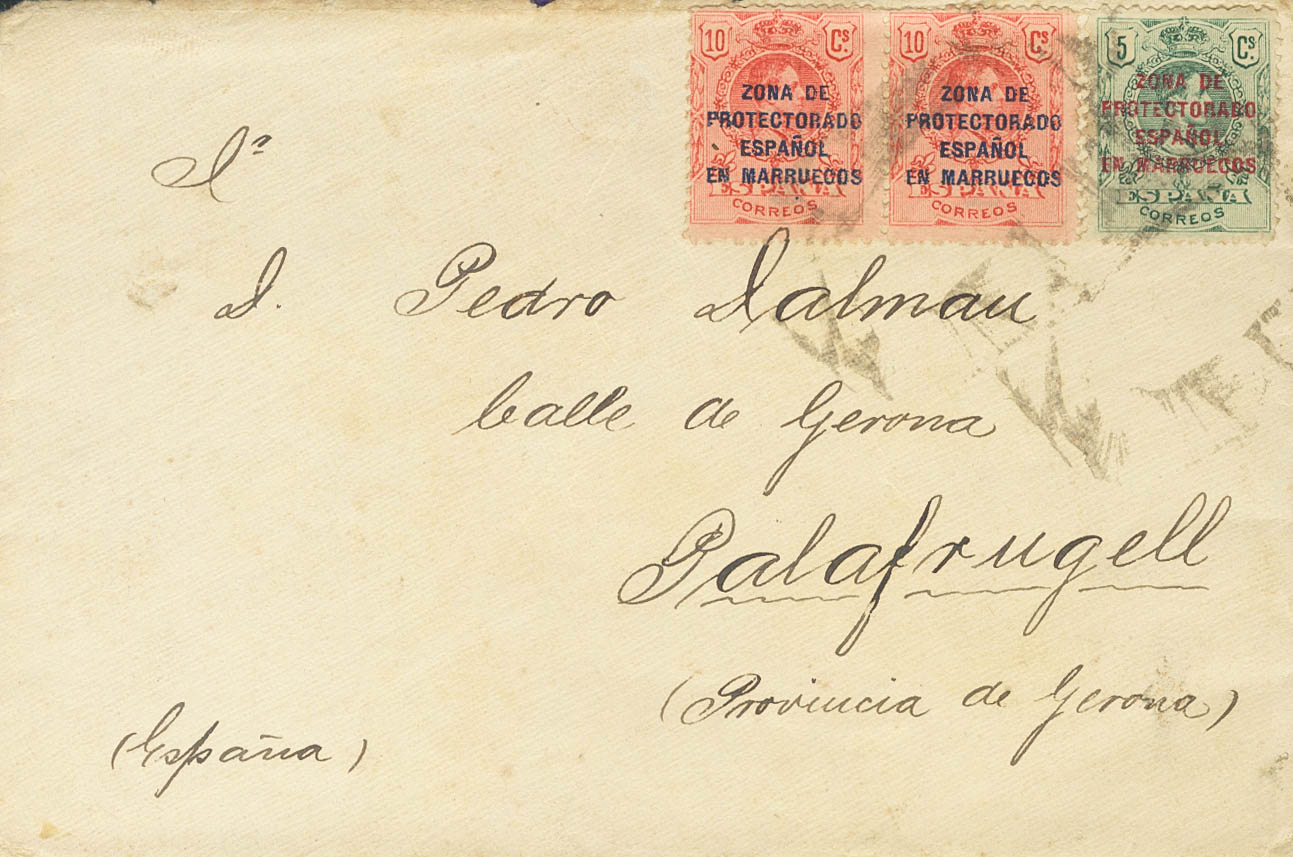 10 Cs 10 Cs 5 Cs
ZONA DE PROTECTORADO ESPAÑOL EN MARRUECOS
ESPAÑA
CORREOS
ZONA DE PROTECTORADO ESPAÑOL EN MARRUECOS
ESPAÑA
CORREOS
ZONA DE PROTECTORADO ESPAÑOL EN MARRUECOS
ESPAÑA
CORREOS
Sr
D. Pedro Dalmau
Calle de Gerona
Palafrugell
(Provincia de Gerona)
(España)